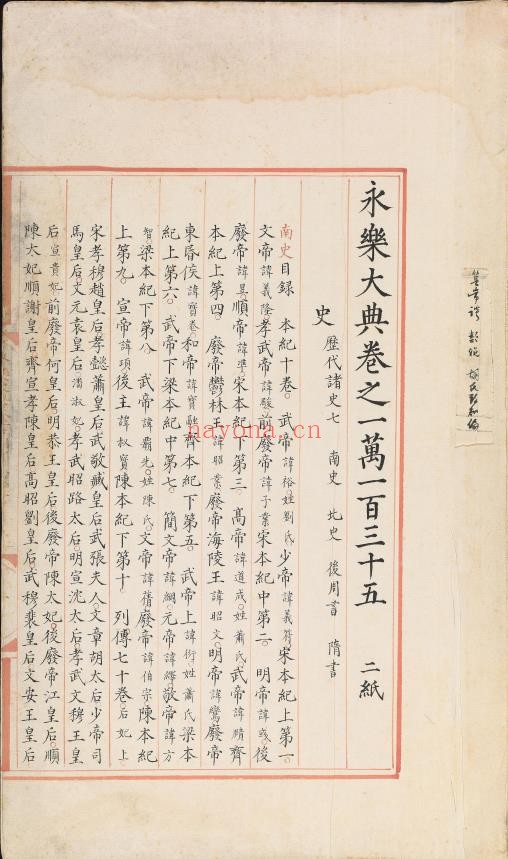 永樂大典卷之一萬一百三十五 二紙
史 歷代諸史七 南史 北史 後周書 隋書
南史目錄 本紀十卷。武帝諱裕姓劉氏少帝諱義符宋本紀上第一。
文帝諱義隆孝武帝諱駿前廢帝諱子業宋本紀中第二。明帝諱彧後
廢帝諱昱順帝諱準宋本紀下第三。高帝諱道成姓蕭氏武帝諱賾齊
本紀上第四。廢帝鬱林王諱昭業廢帝海陵王諱昭文明帝諱鸞廢帝
東昏侯諱寶卷和帝諱寶融齊本紀下第五。武帝上諱衍姓蕭氏梁本
紀上第六。武帝下梁本紀中第七。簡文帝諱綱元帝諱繹敬帝諱方
智梁本紀下第八 武帝諱霸先姓陳氏文帝諱蒨廢帝諱伯宗陳本紀
上第九。宣帝諱頊後主諱叔寶陳本紀下第十。列傳七十卷后妃上
宋孝穆趙皇后孝懿蕭皇后武敬臧皇后武張夫人文章胡太后少帝司
馬皇后文元袁皇后潘淑妃孝武昭路太后明宣沈太后孝武文穆王皇
后宣貴妃前廢帝何皇后明恭王皇后後廢帝陳太妃後廢帝江皇后順
陳太妃順謝皇后齊宣孝陳皇后高昭劉皇后武穆裴皇后文安王皇后
nayona.cn